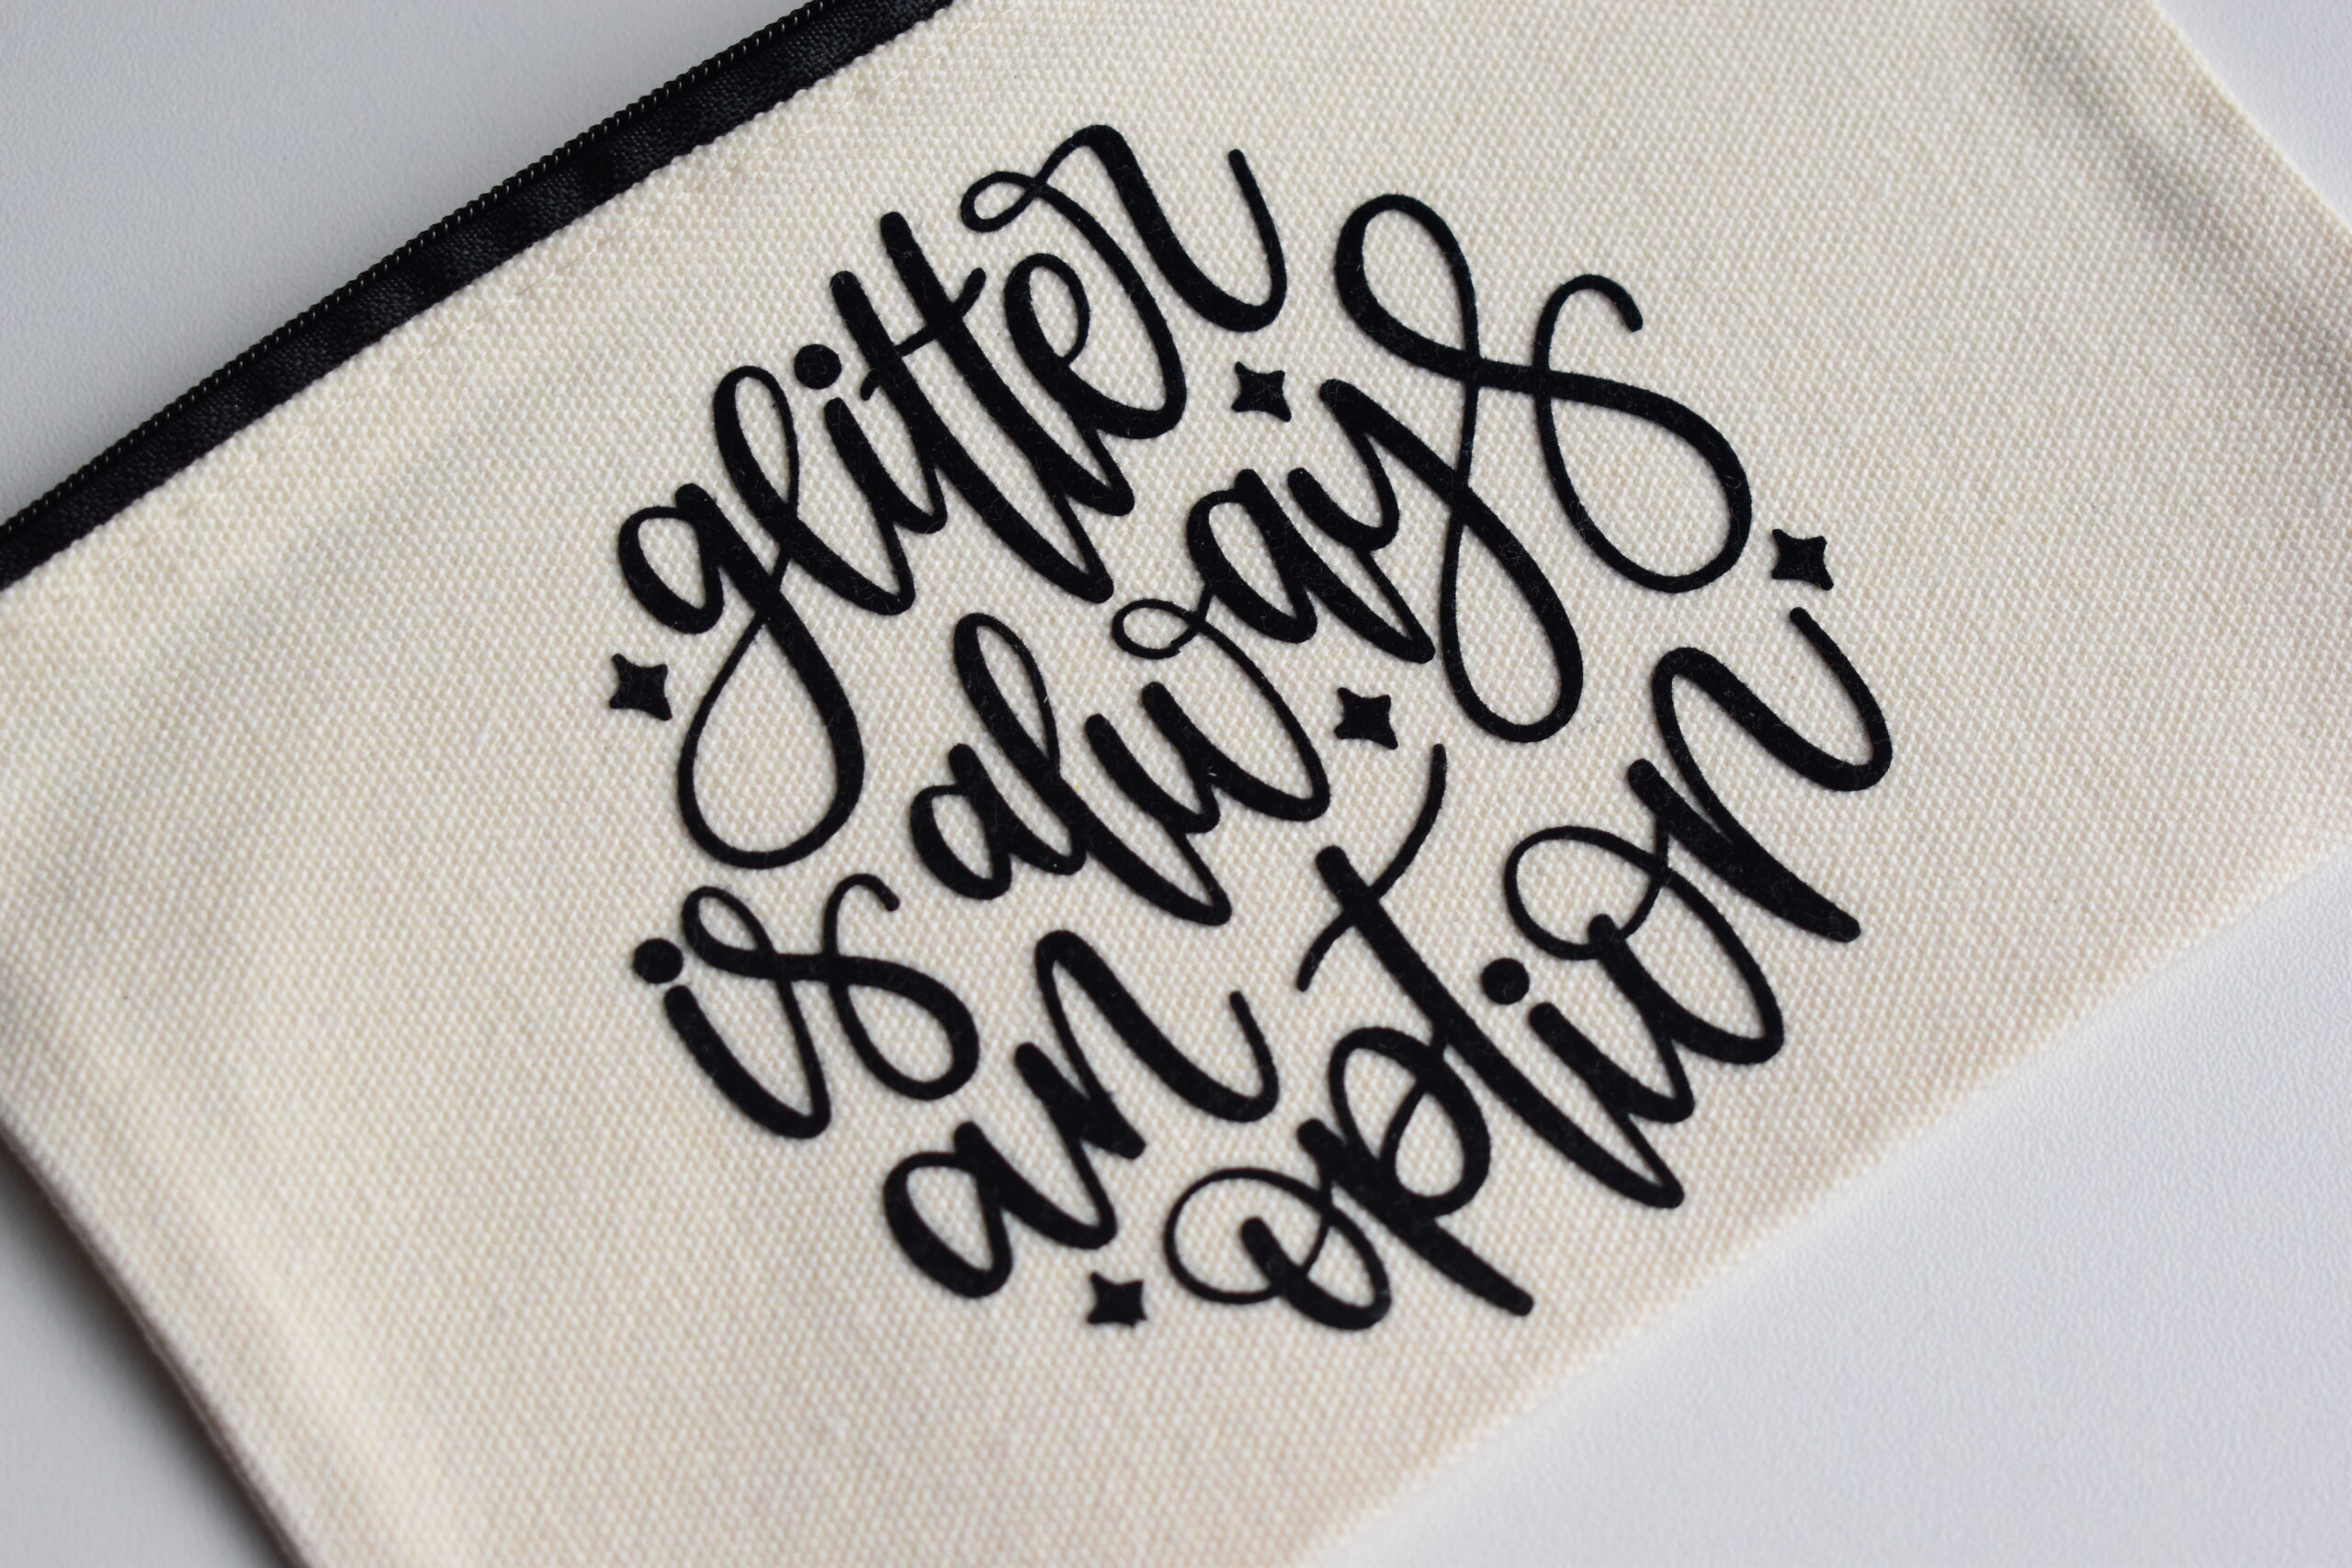 glitter
is always
an option